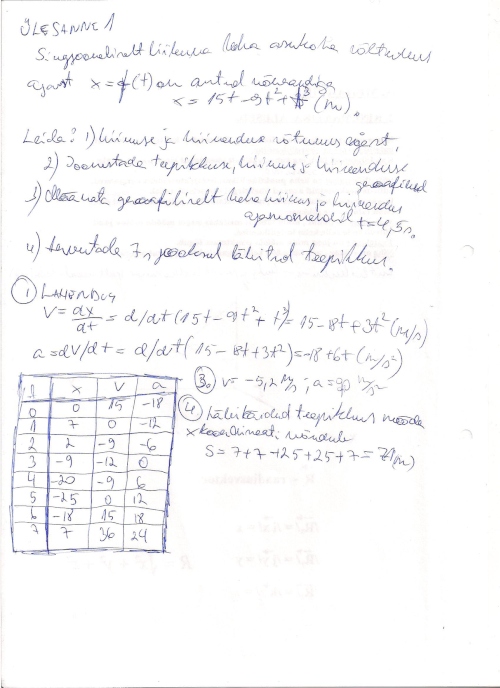 ÜLESANNE 1
Sirgjooneliselt liikuva keha asukoha sõltuvus
ajast x = f(t) on antud võrrandiga
x = 15t - 9t² + t³ (m).
Leida: 1) kiiruse ja kiirenduse sõltuvus ajast,
2) Joonistada teepikkuse, kiiruse ja kiirenduse
graafikud
3) Määrata graafiliselt keha kiirus ja kiirendus
ajamomendil t = 4,5s.
4) Arvutada 7s jooksul läbitud teepikkus.
① LAHENDUS
V = dx/dt = d/dt (15t - 9t² + t³) = 15 - 18t + 3t² (m/s)
a = dV/dt = d/dt (15 - 18t + 3t²) = -18 + 6t (m/s²)
x V a
0 0 15 -18
1 7 0 -12
2 2 -9 -6
3 -9 -12 0
4 -20 -9 6
5 -25 0 12
6 -18 15 18
7 7 36 24
③ V = -5,2 m/s; a = 9,0 m/s²
④ Läbikäidud teepikkus mööda
x koordinaati võrdub
S = 7 + 7 + 25 + 25 + 7 = 71 (m)